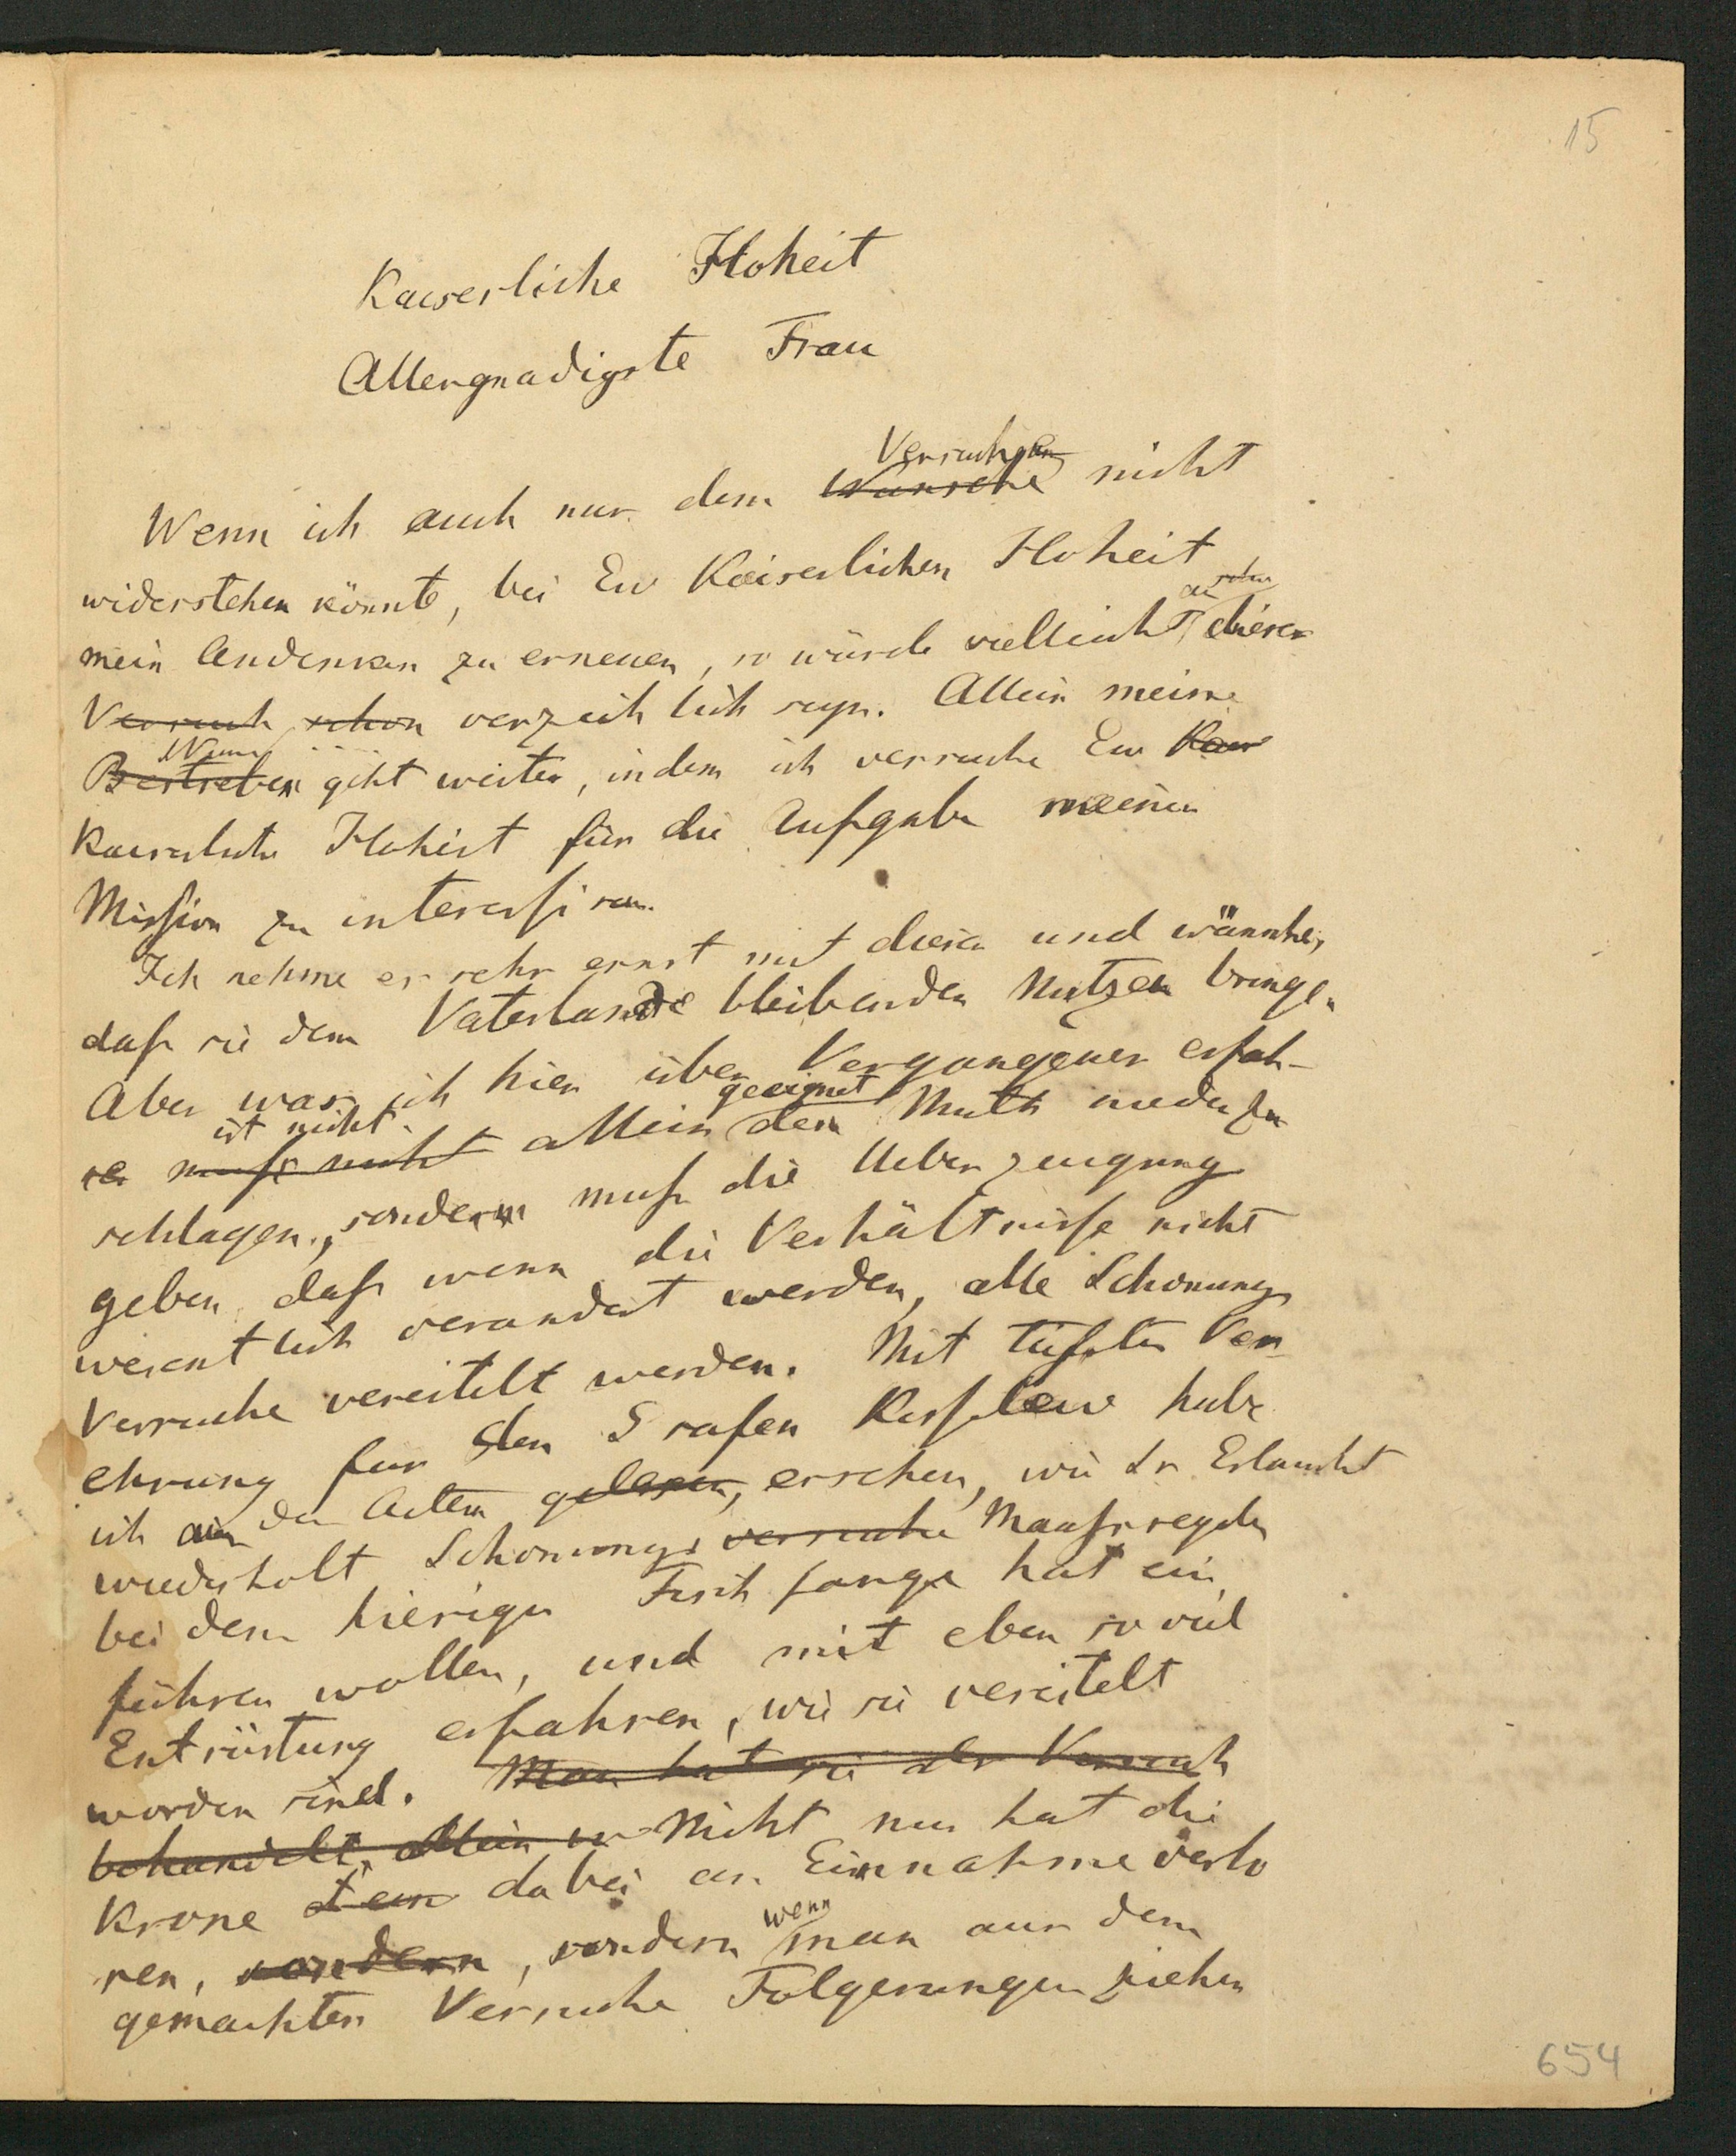 15
Kaiserliche Hoheit
Allergnadigste Frau
Wenn ich auch nur dem Wunsche Versuche nicht
widerstehen könnte, bei Ew Kaiserlichen Hoheit
mein Andenken zu erneuen, so würde vielleicht dieser
Versuch schon verzeihlich seyn. Allein meine
Bestreben geht weiter, indem ich versuche Ew Kais
Kaiserliche Hoheit für die Aufgabe meiner
Mission zu interessiren.
Ich nehme es sehr ernst mit dieser und wünsche,
daß sie dem Vaterlande bleibenden Nutzen bringe.
Aber was ich hier über Vergangenes erfah-
re muß nicht ist nicht allein geeignet den Muth niederzu
schlagen, sondern muß die Ueberzeugung
geben, daß wenn die Verhältnisse nicht
wesentlich verandert werden, alle Schonungs
Versuche vereitelt werden. Mit tiefster Ver-
ehrung für den Grafen Kisselew habe
ich aus den Acten gelesen, ersehen, wie Sr Erlaucht
wiederholt Schonungs versuche Maaßregeln
bei dem hiesigen Fischfange hat ein
führen wollen, und mit eben so viel
Entrüstung erfahren, wie sie vereitelt
worden sind. Man hat sie als Versuch
behandelt, allein Nicht nur hat die
Krone dabei an Einnahme verlo
ren, sondern, sondern wenn man aus dem
gemachten Versuche Folgerungen ziehen
654